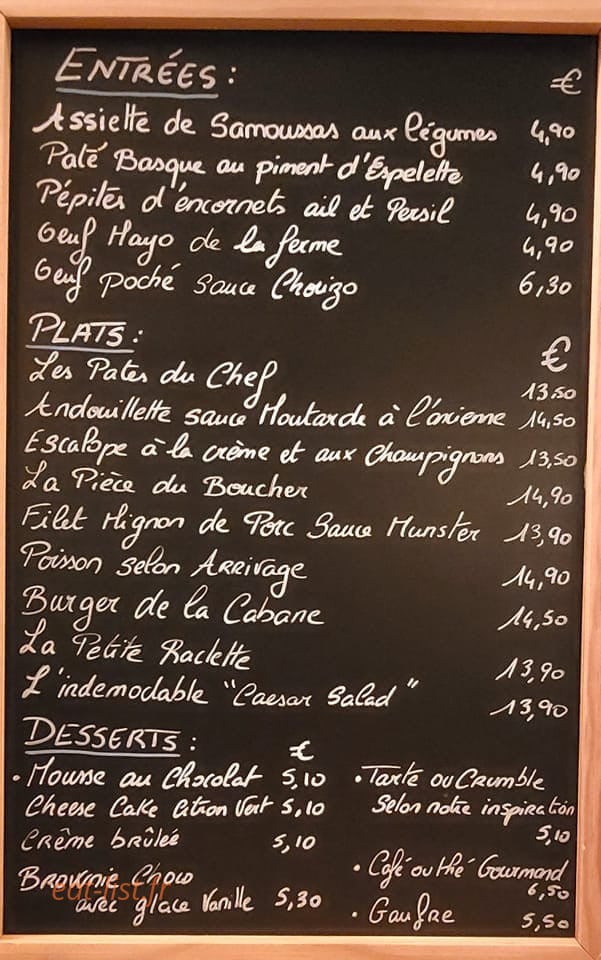 ENTRÉES : €
Assiette de Samoussas aux légumes 4,90
Paté Basque au piment d'Espelette 4,90
Pépites d'encornets ail et Persil 4,90
Oeuf Mayo de la ferme 4,90
Oeuf poché sauce Chorizo 6,30
PLATS : €
Les Pates du Chef 13.50
Andouillette sauce Moutarde à l'ancienne 14,50
Escalope à la crème et aux Champignons 13,50
La Pièce du Boucher 14,90
Filet Mignon de Porc Sauce Munster 13,90
Poisson selon Arrivage 14,90
Burger de la Cabane 14,50
La Petite Raclette 13,90
L'indemodable "Caesar Salad" 13,90
DESSERTS : €
• Mousse au Chocolat 5,10
Cheese Cake Citron Vert 5,10
Crême brûleé 5,10
Brownie Choco
avec glace Vanille 5,30
• Tarte ou Crumble
Selon notre inspiration
5,10
• Café ou thé Gourmand
6,50
• Gaufre 5,50
eat-list.fr